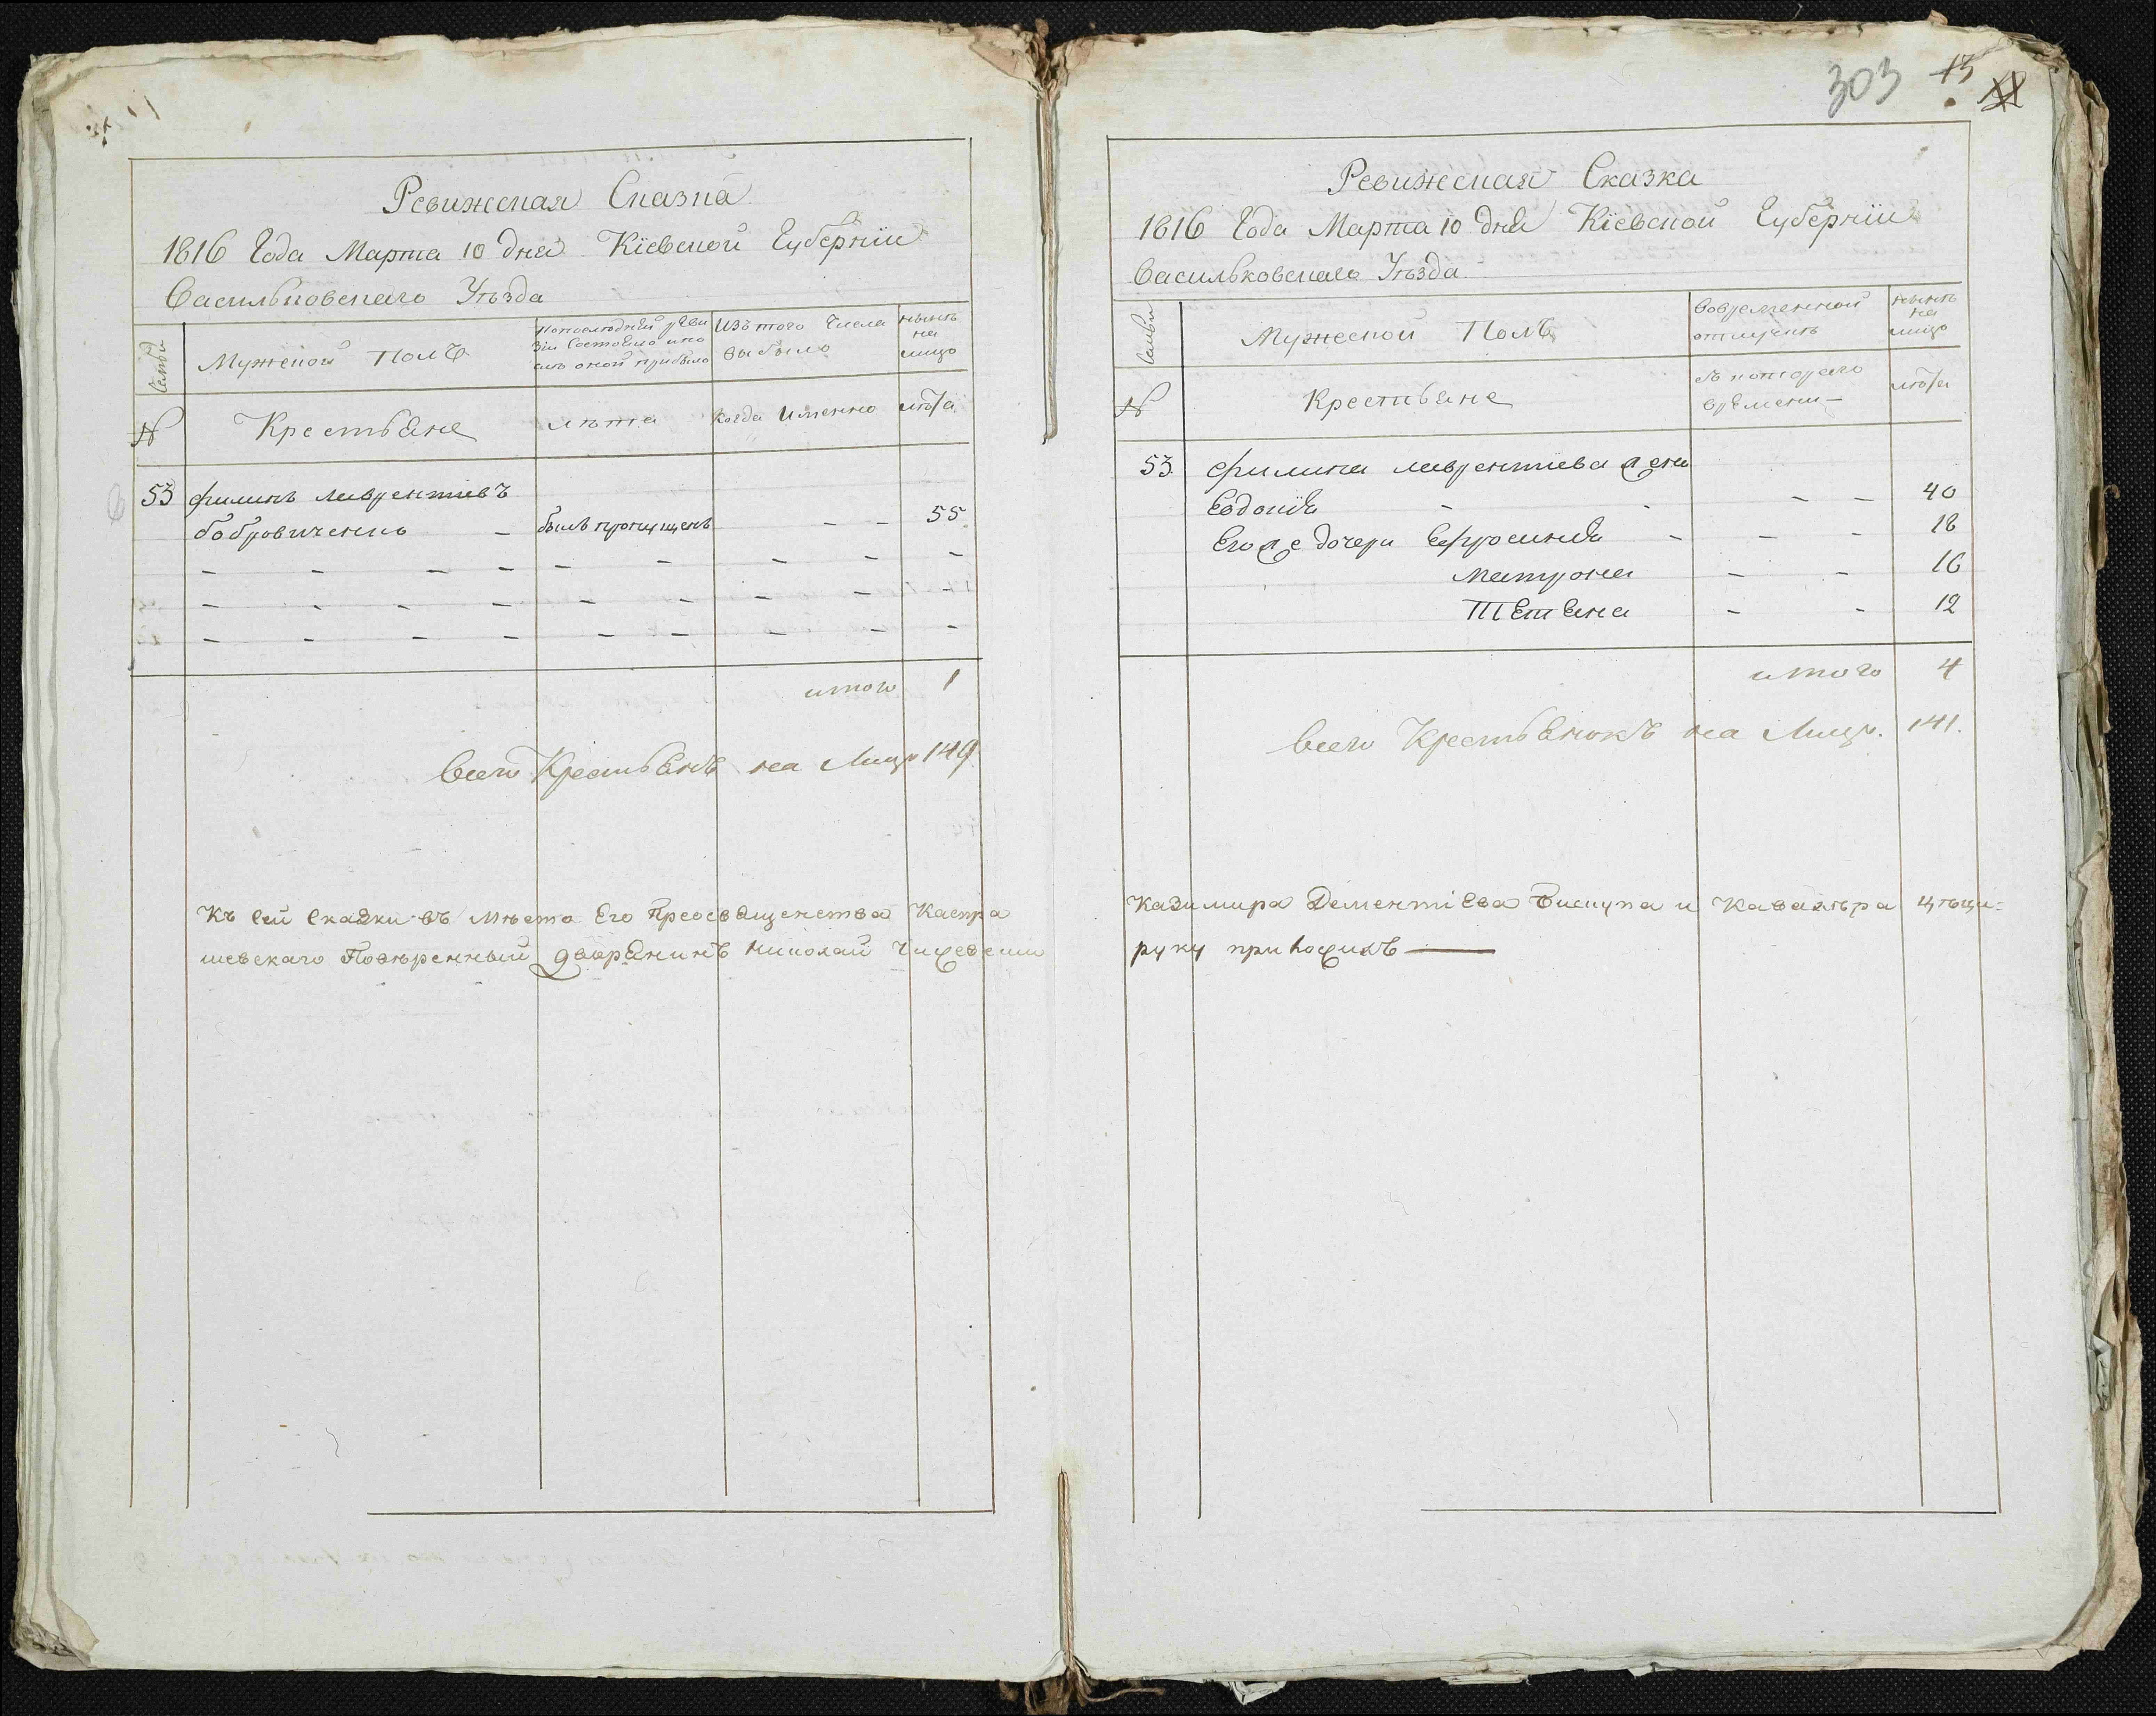 Ревижская Сказка
1816 Года Марта 10 дня Кіевской Губернїи
Васильковскаго Уѣзда
Семьи
Мужеской Полъ
Попоследней реви
зіи Состояло ипо
слѣ оной прибыло
Изъ того Числа
выбыло
нынѣ
на
лицо
№
Крестьяне
лѣта
Когда Именно
лѣта
53 филипъ лаврентіевъ
бобровиченко - былъ пропущенъ - - 55
- - - - - - - - -
- - - - - - - - -
- - - - - - - - -
итого 1
Всего Крестьянъ на Лицо 149
Къ сей Сказки въ Мѣсто Его Преосвященства Каспра
руку приложилъ
шевскаго Повѣренный дворянинъ Николай
303 13
Ревижская Сказка
1816 Года Марта 10 дня Кіевской Губернїи
Васильковскаго Уѣзда
Семьи
Мужеской Полъ
Вовременной
отлучкѣ
нынѣ
на
лицо
№
Крестьяне
съ котораго
времени
лѣта
53. филипа лаврентіева жена
Евдокія - - - 40
Егоже дочери Ефросинія - - - 18
Матрона - - 16
Тетяна - - 12
итого 4
Всего Крестьянокъ на Лицо. 141.
Казимира Дементіева Бискупа и Кавалѣра Цѣци=
руку приложилъ